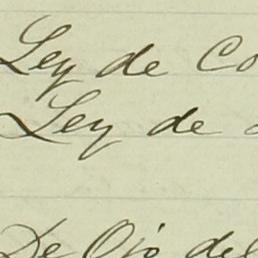 Ley de Co
Ley de
De Ojo del